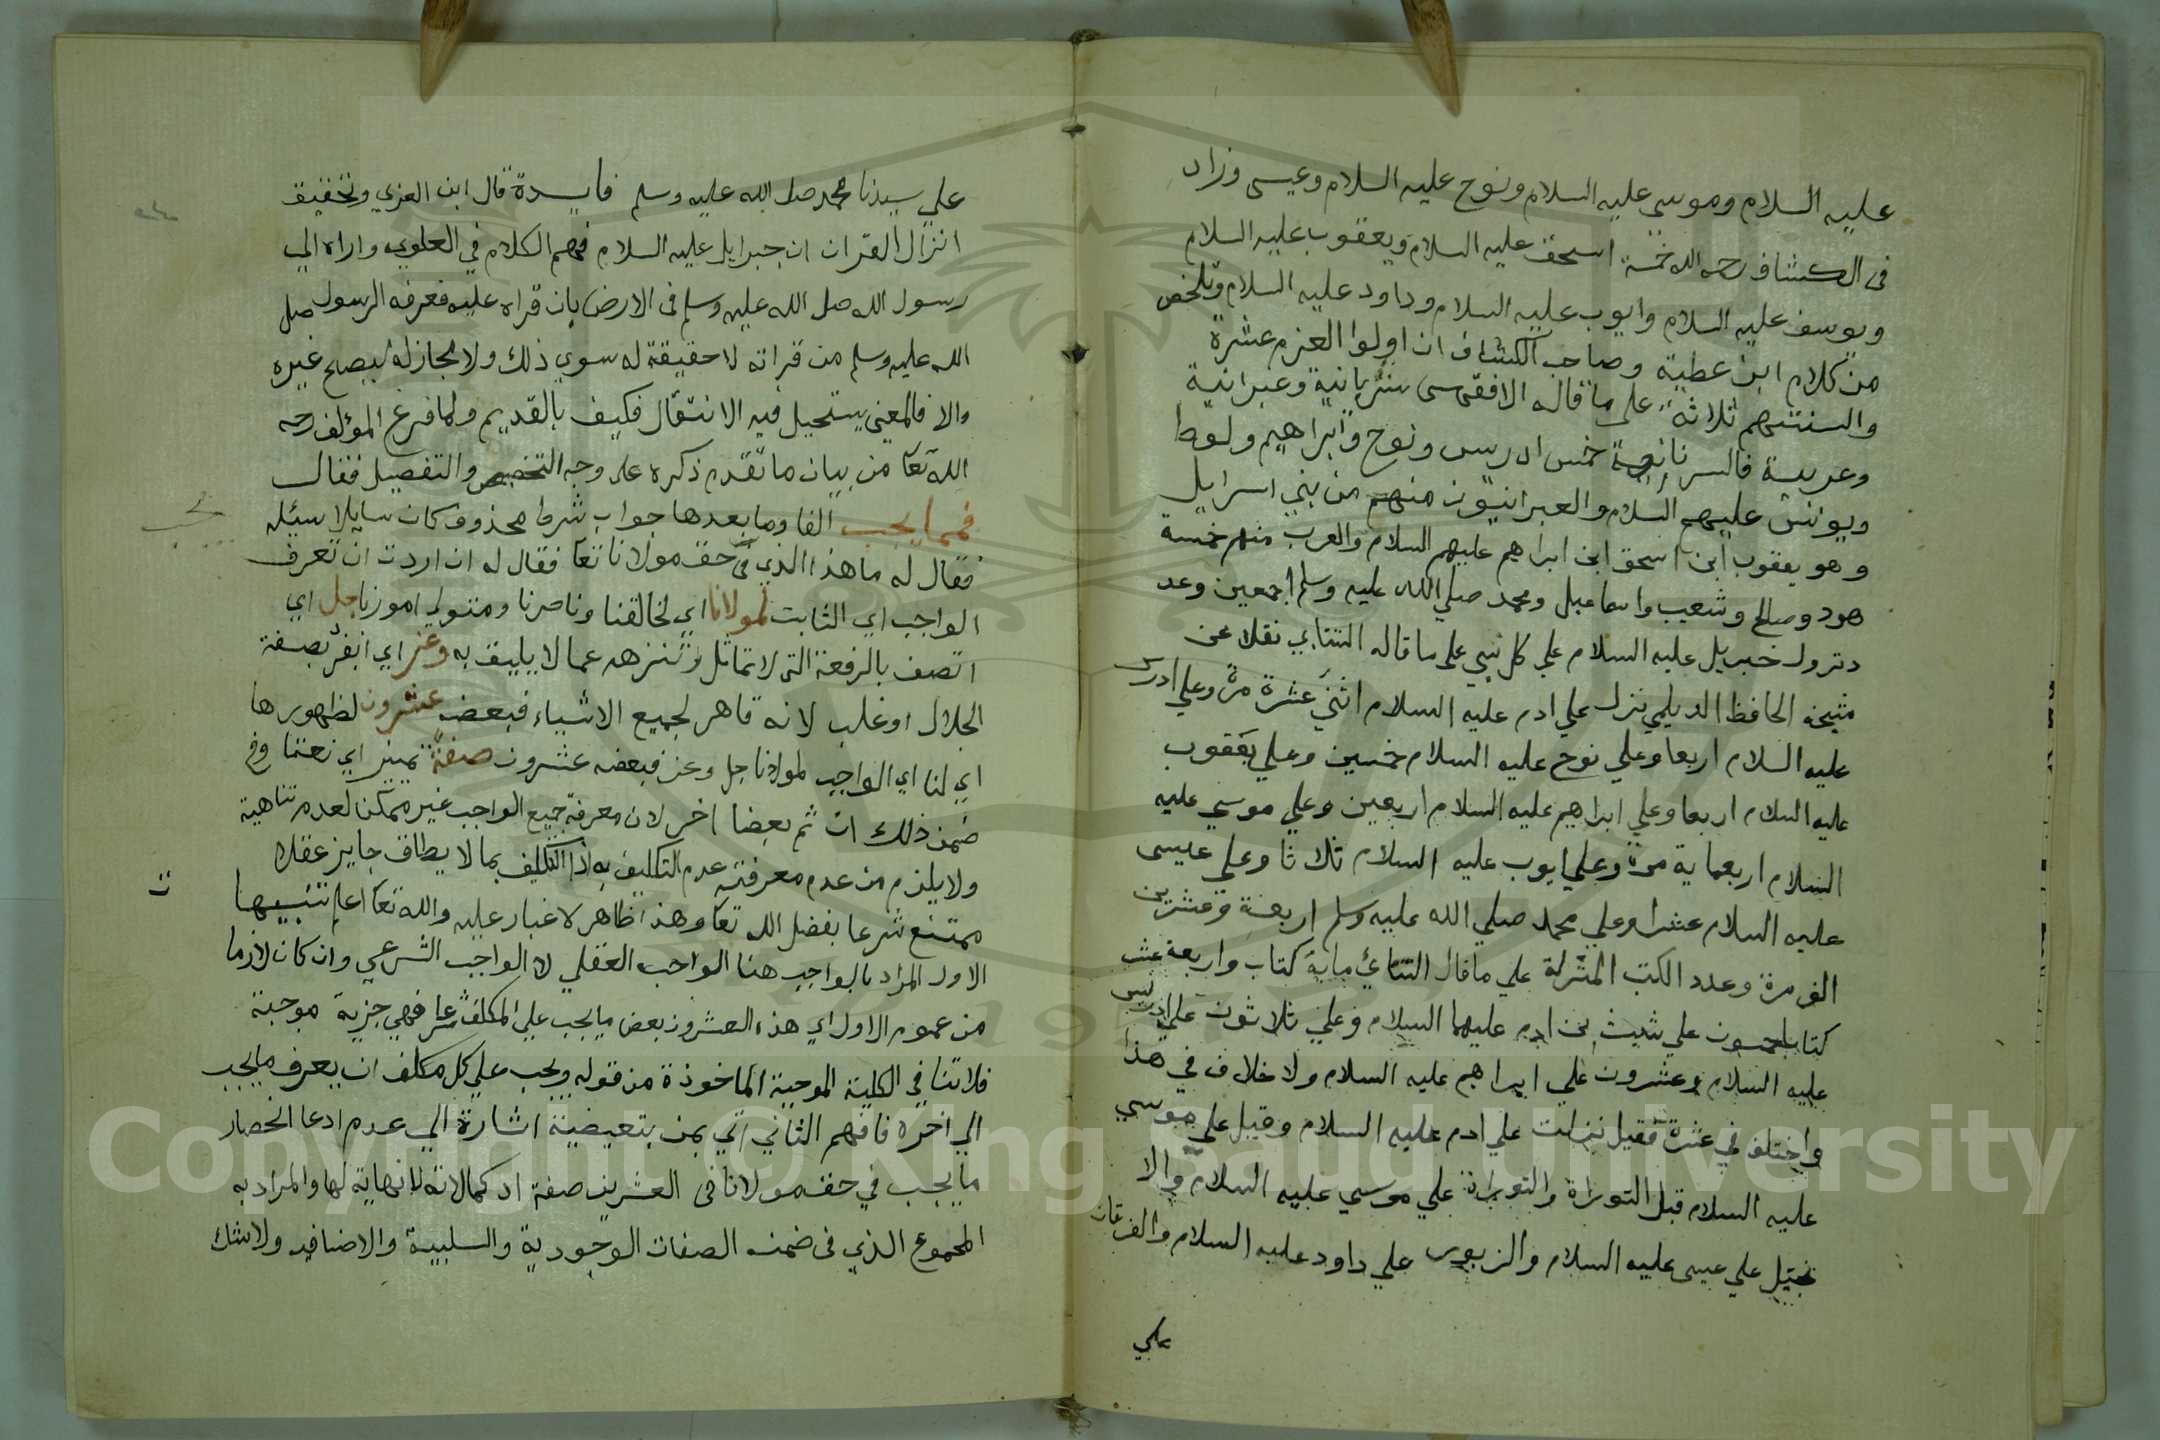 عليه السلام وموسي عليه السلام ونوح عليه السلام وعيسى وزاد
في الكشاف رحمه الله خمسة اسحق عليه السلام ويعقوب عليه السلام
ويوسف عليه السلام وايوب عليه السلام وداود عليه السلام وتلخص
من كلام ابن عطية وصاحب الكشاف ان اولوا العزم عشرة
والسنتهم ثلاثة على ما قاله الاقفهسى سريانية وعبرانية
وعربية فالسريانية خمس ادريس ونوح وابراهيم ولوط
ويونس عليهم السلام والعبرانيون منهم من بني اسرايل
وهو يعقوب ابن اسحق ابن ابراهيم عليهم السلام والعرب منهم خمسة
هود وصالح وشعيب واسماعيل ومحمد صلي الله عليه وسلم اجمعين وعد
دنزول جبريل عليه السلام علي كل نبي على ما قاله التتاي نقلا عن
شيخه الحافظ الديلمي نزل علي ادم عليه السلام اثني عشرة مرة وعلي ادريس
عليه السلام اربعا وعلي نوح عليه السلام خمسين وعلي يعقوب
عليه السلام اربعا وعلي ابراهيم عليه السلام اربعين وعلي موسي عليه
السلام اربعماية مرة وعلي ايوب عليه السلام ثلاثا وعلي عيسى
عليه السلام عشرا وعلي محمد صلي الله عليه وسلم اربعة وعشرين
الف مرة وعدد الكتب المنزلة علي ما قال التتاي ماية كتاب واربعة عشر
كتابا خمسون علي شيث بن ادم عليهما السلام وعلي ثلاثون علي ادريس
عليه السلام وعشرون علي ابراهيم عليه السلام ولا خلاف في هذا
واختلف في عشرة فقيل نزلت علي ادم عليه السلام وقيل علي موسي
عليه السلام قبل التوراة والتوراة علي موسي عليه السلام والا
نجيل علي عيسى عليه السلام والزبور علي داود عليه السلام والفرقان
علي
علي سيدنا محمد صلى الله عليه وسلم فايدة قال ابن العربي وتحقيق
انزال القران ان جبرايل عليه السلام فهم الكلام في العلوي واراه الي
رسول الله صلى الله عليه وسلم في الارض بان قراه عليه فعرفه الرسول صلى
الله عليه وسلم من قراته لا حقيقة له سوي ذلك ولا مجاز له يصح غيره
والا فالمعنى يستحيل فيه الانتقال فكيف بالقديم ولما فرغ المؤلف رحمه
الله تعا من بيان ما تقدم ذكره على وجه التخصيص والتفصيل فقال
فمما يجب الفا وما بعدها جواب شرط محذوف كان سايلا سيئله
فقال له ما هذا الذي في حق مولانا تعا فقال له ان اردت ان تعرف
الواجب اي الثابت لمولانا اي لخالقنا وناصرنا ومتولي امورنا جل اي
اتصف بالرفعة التي لا تماثل وتنزهه عما لا يليق به وعز اي انفرد بصفة
الجلال او غلب لانه قاهر لجميع الاشياء فبعضه عشرون لظهورها
اي لنا اي الواجب لمولانا جل وعز فبعضه عشرون صفة تمييز اي نعتا وفي
ضمن ذلك ان ثم بعضا اخر لان معرفة جميع الواجب غير ممكن لعدم تناهية
ولا يلزم من عدم معرفته عدم التكليف به اذ التكليف بما لا يطاق جايز عقلا
ممتنع شرعا بفضل الله تعا وهذا ظاهر لا غبار عليه والله تعا اعلم تنبيها
ت
الاول المراد بالواجب هنا الواجب العقلي لا الواجب الشرعي وان كان لازما
من عموم الاول اي هذه العشرون بعض ما يجب علي المكلف شرعا فهي جزية موجبة
فلا تنافي الكلية الموجبة الماخوذة من قوله ويجب علي كل مكلف ان يعرف ما يجب
الي اخره فافهم الثاني اتي بمن بتعيضية اشارة الي عدم ادعا انحصار
ما يجب في حق مولانا في العشرين صفة اد كمالاته لا نهاية لها والمراد به
المجموع الذي في ضمنه الصفات الوجودية والسلبية والاضافيه ولا شك
يجب
Copyright © King Saud University